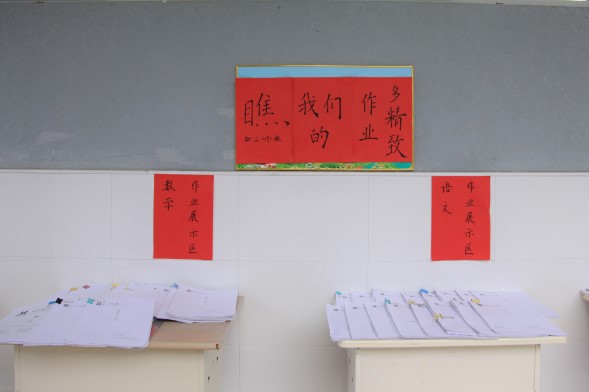 瞧 我们的 作业 多精致
数学
作业展示区
语文
作业展示区